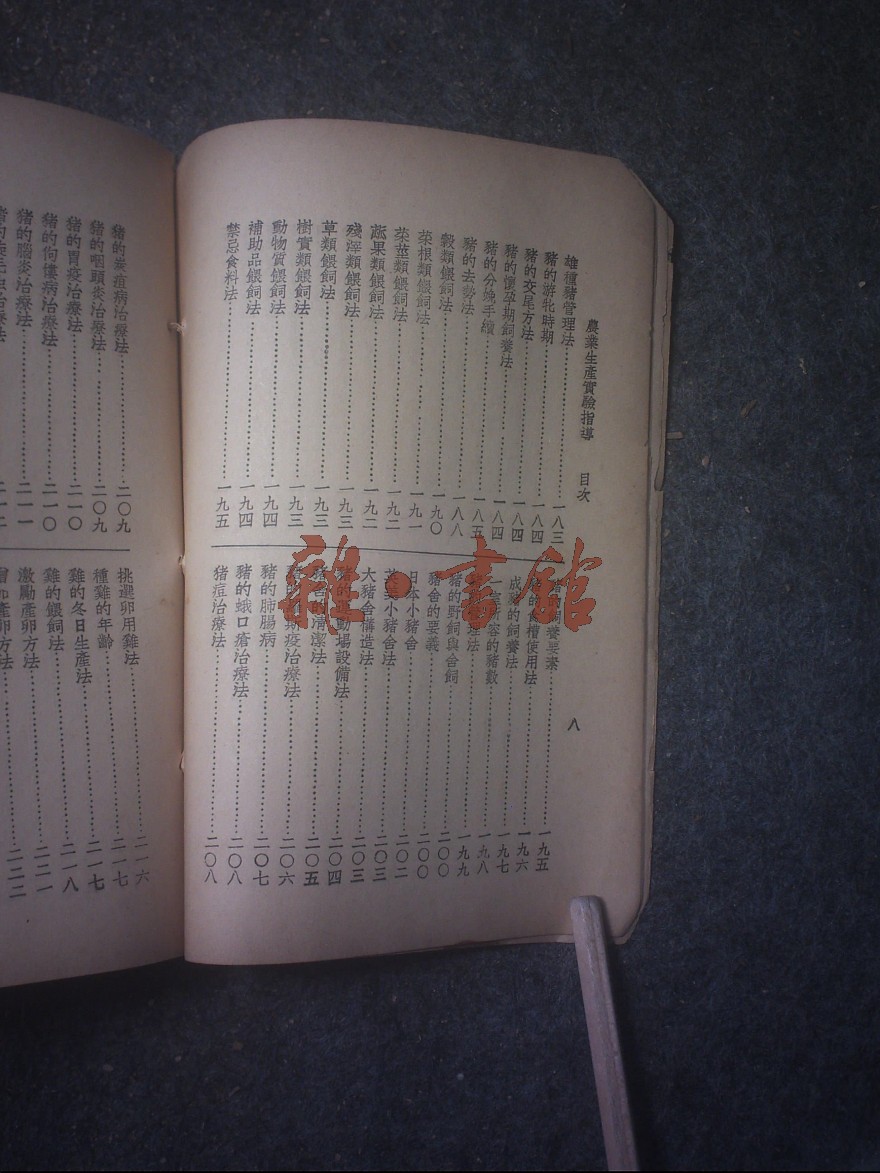 農業生產實驗指導 目次 八
雄種豬管理法 一八三
豬的游牝時期 一八四
豬的交尾方法 一八四
豬的懷孕期飼養法 一八四
豬的分娩手續 一八五
豬的去勢法 一八八
穀類餵飼法 一九〇
菜根類餵飼法 一九一
菜莖類餵飼法 一九二
蔬果類餵飼法 一九二
殘滓類餵飼法 一九三
草類餵飼法 一九三
樹實類餵飼法 一九三
動物質餵飼法 一九四
補助品餵飼法 一九四
禁忌食料法 一九五
飼養要素 一九五
豬的食槽使用法 一九六
成豬的飼養法 一九七
一室所容的豬數 一九八
理法 一九九
豬的野飼與舍飼 二〇〇
豬舍的要義 二〇〇
日本小豬舍 二〇二
英美小豬舍法 二〇三
大豬舍構造法 二〇三
豬的運動場設備法 二〇四
豬舍的清潔法 二〇五
期疫治療法 二〇六
豬的肺腸病 二〇七
豬的蛾口瘡治療法 二〇八
豬痘治療法 二〇八
豬的炭疽病治療法 二〇九
豬的咽頭炎治療法 二〇九
豬的胃疫治療法 二一〇
豬的佝僂病治療法 二一〇
豬的腦炎治療法 二一一
挑選卵用雞法 二一六
種雞的年齡 二一七
雞的冬日生產法 二一七
雞的餵飼法 二一八
激勵產卵方法 二二一
雜·書館